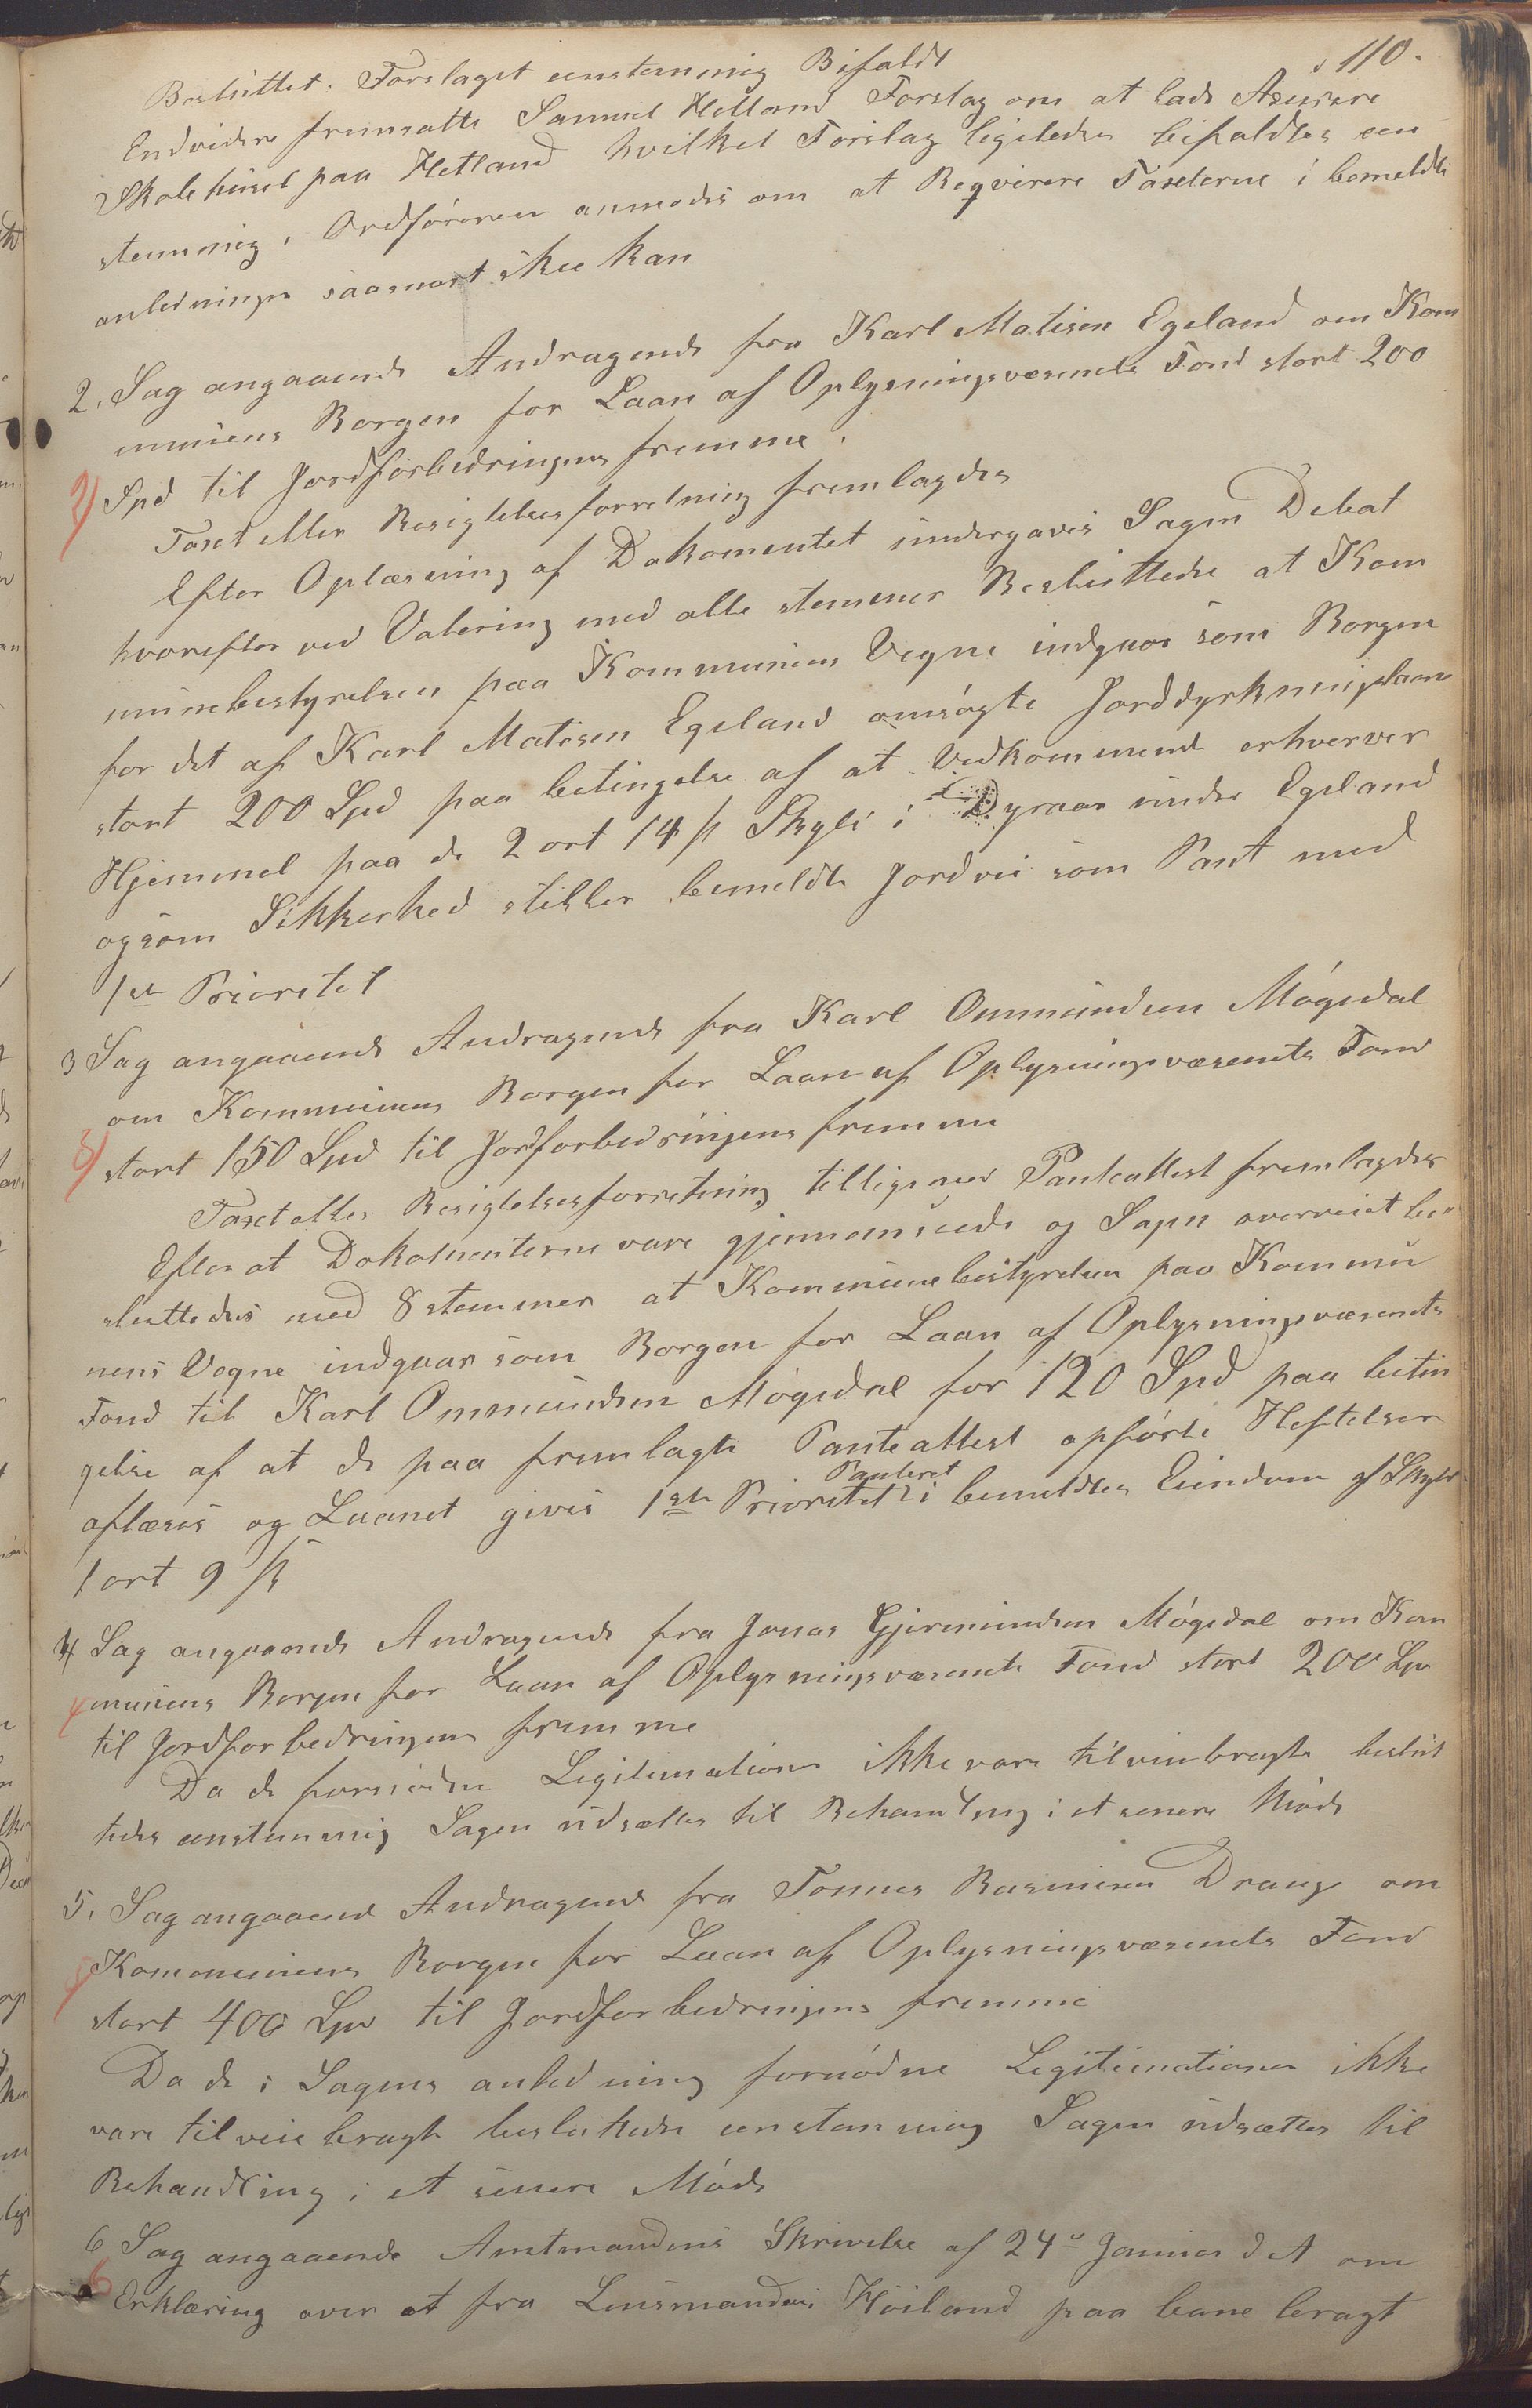 110.
Besluttet: Forslaget eenstemmig Bifaldt
Endvidere fremsatte Samuel Hetland Forslag om at lade Asurere
Skolehuset paa Hetland hvilket Forslag ligeledes bifaldtes een
stemmig, Ordføreren anmodes om at Reqvirere Taxterne i bemeldte
anledninger saasnart skee kan
2. Sag angaaende Andragende fra Karl Matisen Egeland om Kom
munens Borgen for Laan af Oplysningsvæsenets Fond stort 200
2) Spd til Jordforbedringens fremme.
Taxt eller Besigtelsesforretning fremlagdes
Efter Oplæsning af Dokomentet undergaves Sagen Debat
hvorefter ved Votering med alle stemmer Besluttedes at Kom
munebestyrelsen paa Kommunens Vegne indgaar som Borgen
for det af Karl Matesen Egeland omsøgte Jorddyrkningslaan
stort 200 Spd paa betingelse af at Vedkommende erhverver
Hjemmel paa de 2 ort 14 ß Skyld i Dyraas under Egeland
og som Sikkerhed stiller bemeldte Jordvei som Pant med
1ste Prioritet
3 Sag angaaende Andragende fra Karl Ommundsen Møgedal
om Kommunens Borgen for Laan af Oplysningsvæsenets Fond
3) stort 150 Spd til Jordforbedringens fremme
Taxt eller Besigtelsesforretning tilligemed Panteattest fremlagdes
Efter at Dokomenterne vare gjennemseede og Sagen overveiet be-
sluttedes med 8 stemmer at Kommunebestyrelsen paa Kommu
nens Vegne indgaar som Borgen for Laan af Oplysningsvæsenets
Fond til Karl Ommundsen Møgedal for 120 Spd paa betin
gelse af at de paa fremlagte Panteattest opførte Heftelser
aflæses og Laanet gives 1ste Prioritets Panteret i bemeldtes Eiendom af Skyld
1 ort 9 ß
4 Sag angaaende Andragende fra Jonas Gjermundsen Møgedal om Kom
4 munens Borgen for Laan af Oplysningsvæsenets Fond stort 200 Spd
til Jordforbedringens fremme
Da de fornødne Legitimationer ikke vare tilveiebragte beslut
tedes eenstemmig Sagen udsættes til Behandling i et senere Møde
5. Sag angaaende Andragende fra Tønnes Rasmusen Drange om
5 Kommunens Borgen for Laan af Oplysningsvæsenets Fond
stort 400 Spd til Jordforbedringens fremme
Da de i Sagens anledning fornødne Legitimationer ikke
vare tilveiebragte besluttedes eenstemmig Sagen udsættes til
Behandling i et senere Møde
6 Sag angaaende Amtmandens Skrivelse af 24de Januar d A om
6 Erklæring over at fra Lensmanden Høiland paa bane bragt